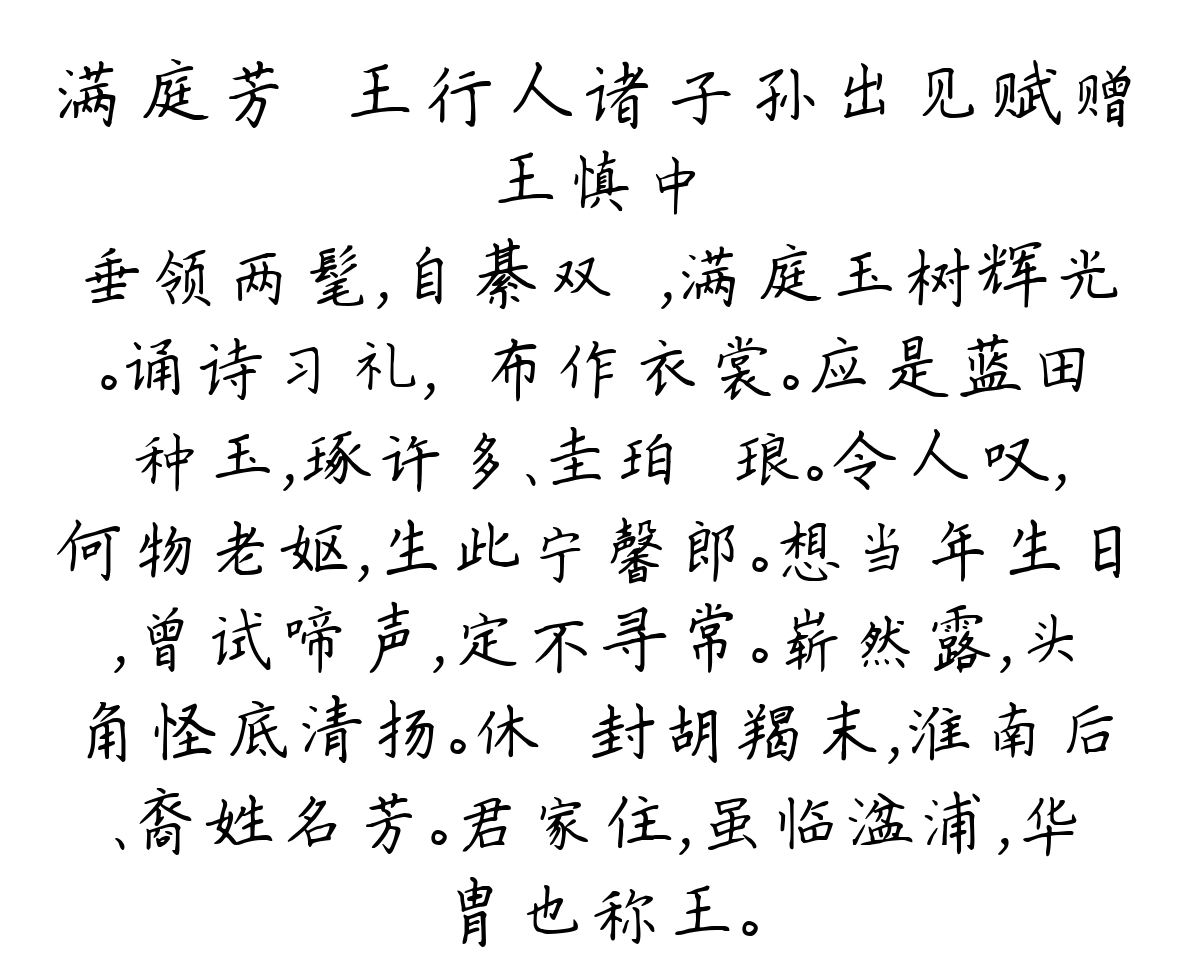 满庭芳 王行人诸子孙出见赋赠
王慎中
垂领两髦,自綦双 ,满庭玉树辉光
。诵诗习礼, 布作衣裳。应是蓝田
种玉,琢许多、圭珀 琅。令人叹,
何物老妪,生此宁馨郎。想当年生日
,曾试啼声,定不寻常。崭然露,头
角怪底清扬。休 封胡羯末,淮南后
、裔姓名芳。君家住,虽临湓浦,华
胄也称王。